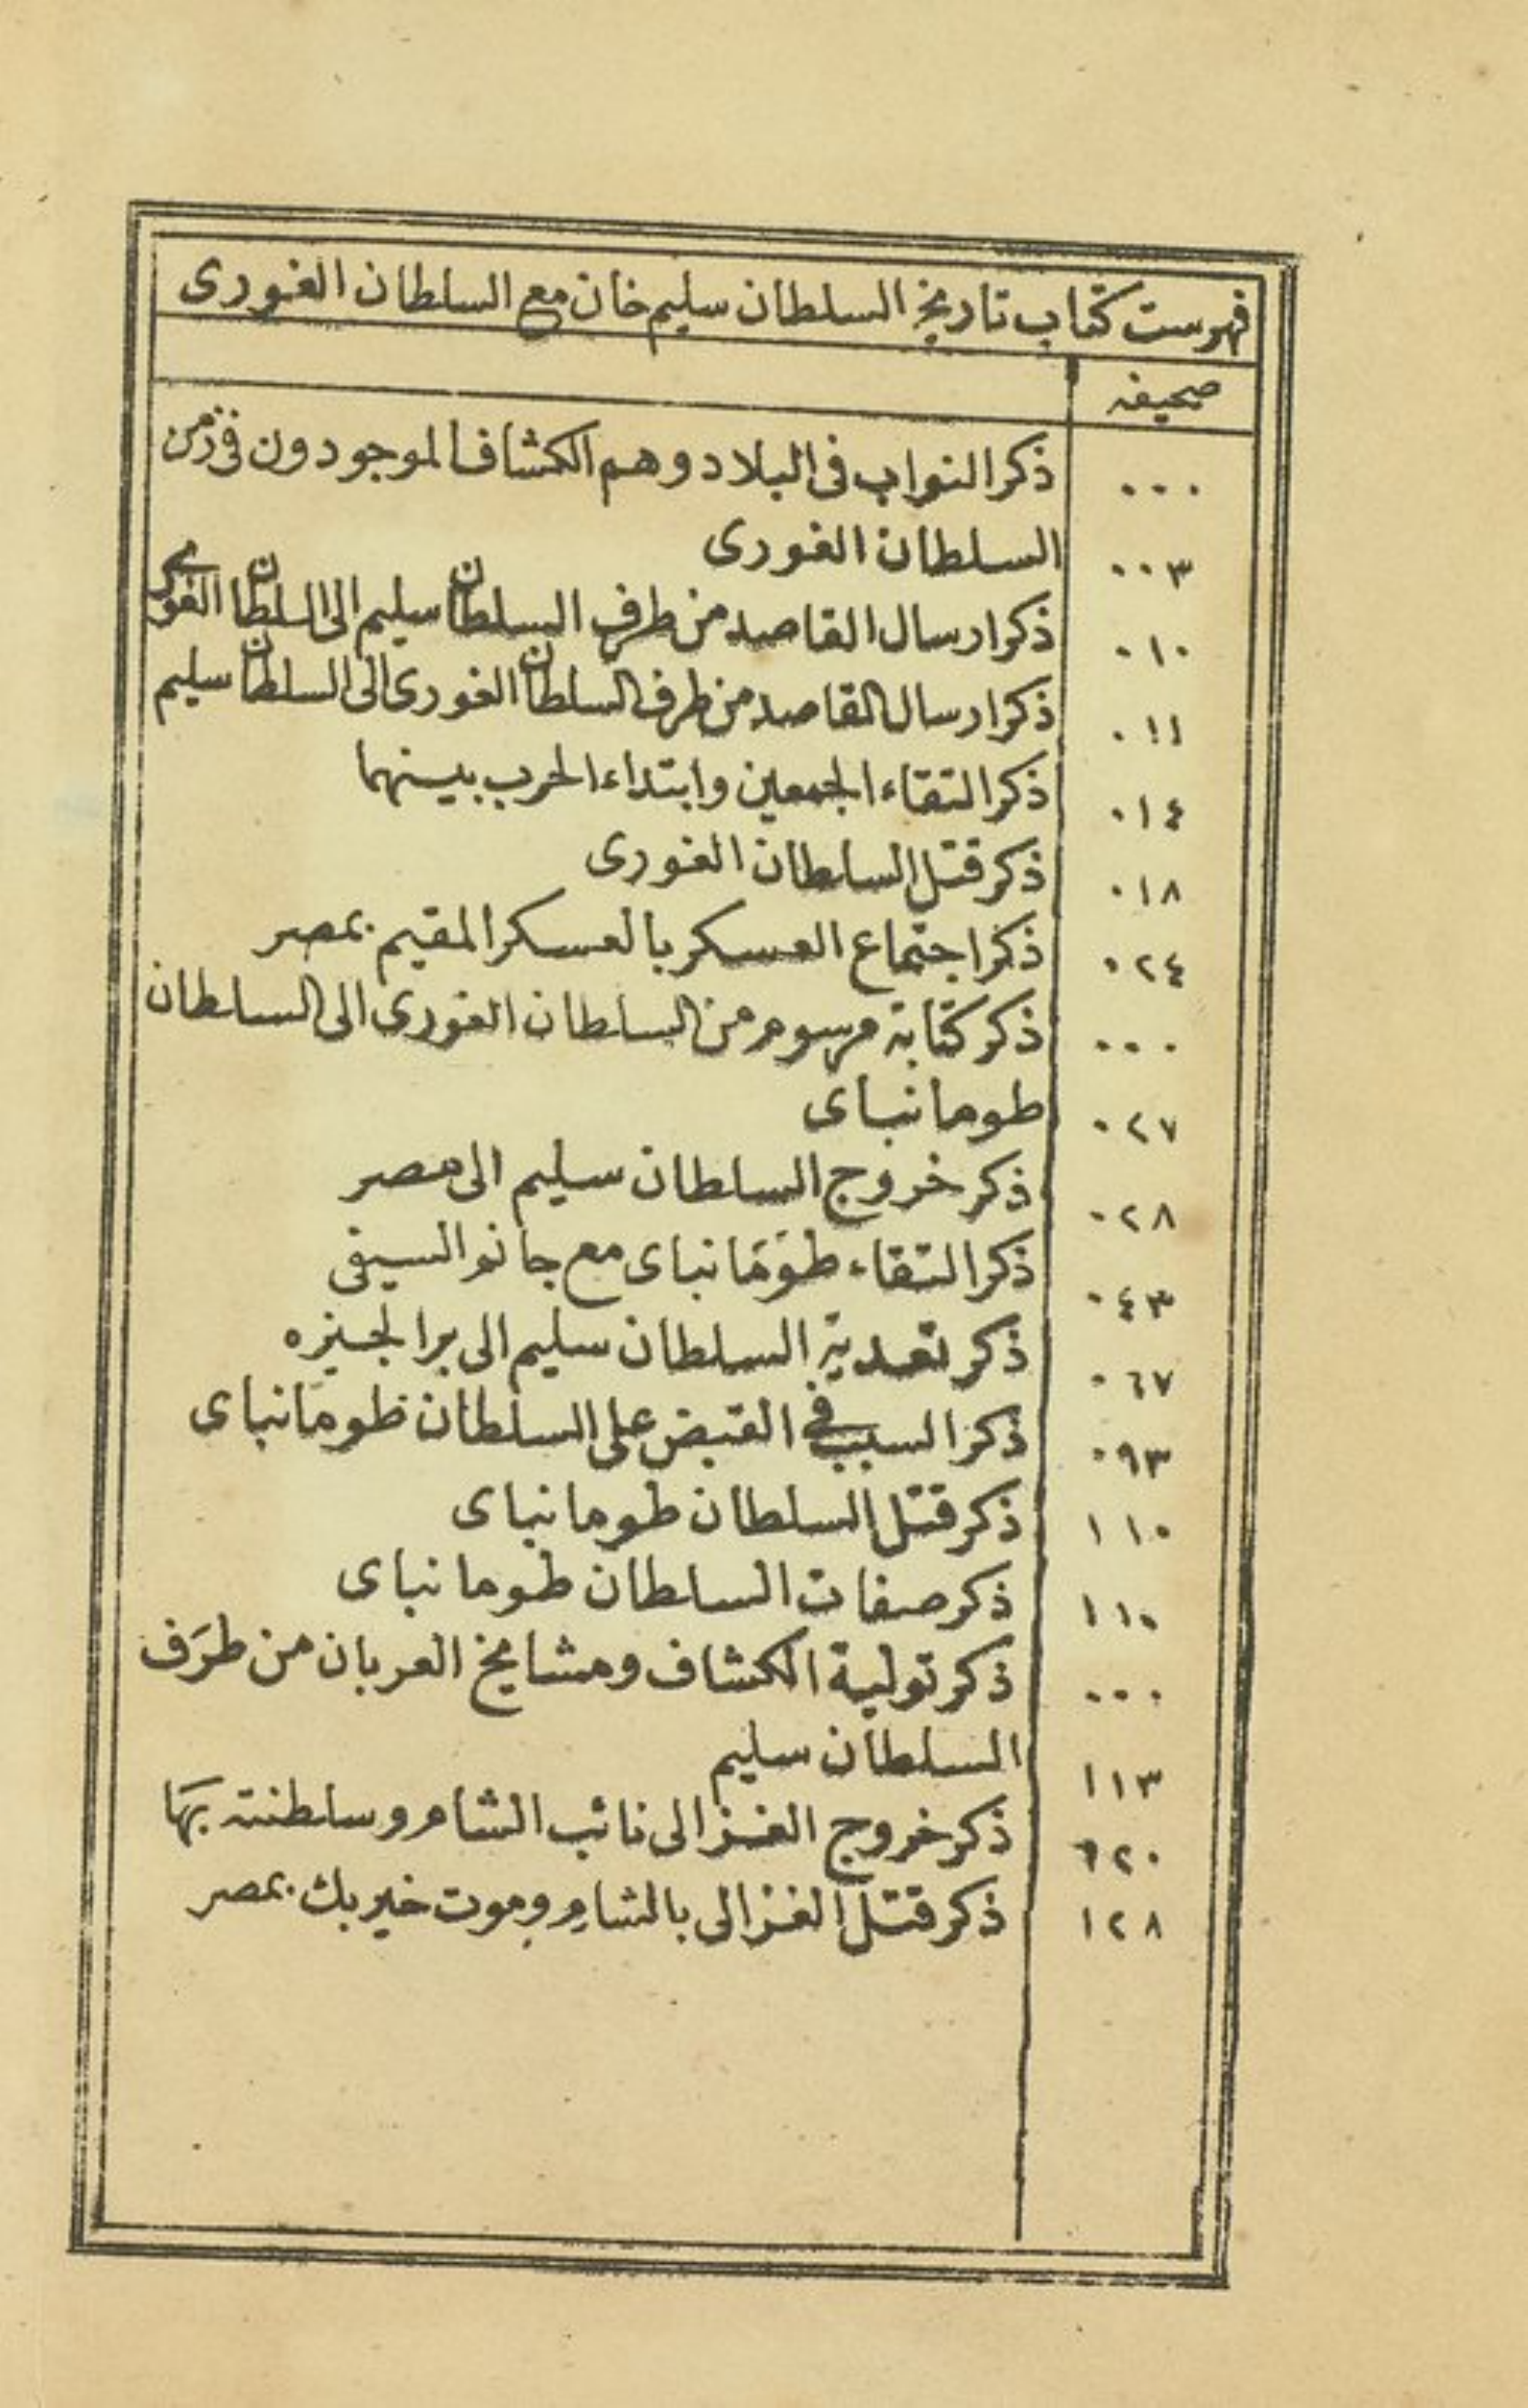 فهرست كتاب تاريخ السلطان سليم خان مع السلطان الغورى
صحيفه
٠٠٠ ذكر النواب فى البلاد وهم الكشاف الموجودون فى زمن
٠٠٣ السلطان الغورى
٠١٠ ذكر ارسال القاصد من طرف السلطان سليم الى السلطان الغورى
٠١١ ذكر ارسال القاصد من طرف السلطان الغورى الى السلطان سليم
٠١٤ ذكر التقاء الجمعين وابتداء الحرب بينهما
٠١٨ ذكر قتل السلطان الغورى
٠٢٤ ذكر اجتماع العسكر بالعسكر المقيم بمصر
٠٠٠ ذكر كتابة مرسوم من السلطان الغورى الى السلطان
٠٢٧ طومانباى
٠٢٨ ذكر خروج السلطان سليم الى مصر
٠٤٣ ذكر التقاء طَومَانباى مع جانم السيفى
٠٦٧ ذكر تعدية السلطان سليم الى بر الجيزه
٠٩٣ ذكر السبب في القبض على السلطان طومَانباى
١١٠ ذكر قتل السلطان طومانباى
١١٠ ذكر صفات السلطان طومانباى
٠٠٠ ذكر تولية الكشاف ومشايخ العربان من طرَف
١١٣ السلطان سليم
٦٢٠ ذكر خروج الغزالى نائب الشام وسلطنته بهَا
١٢٨ ذكر قتل الغزالى بالشام وموت خير بك بمصر